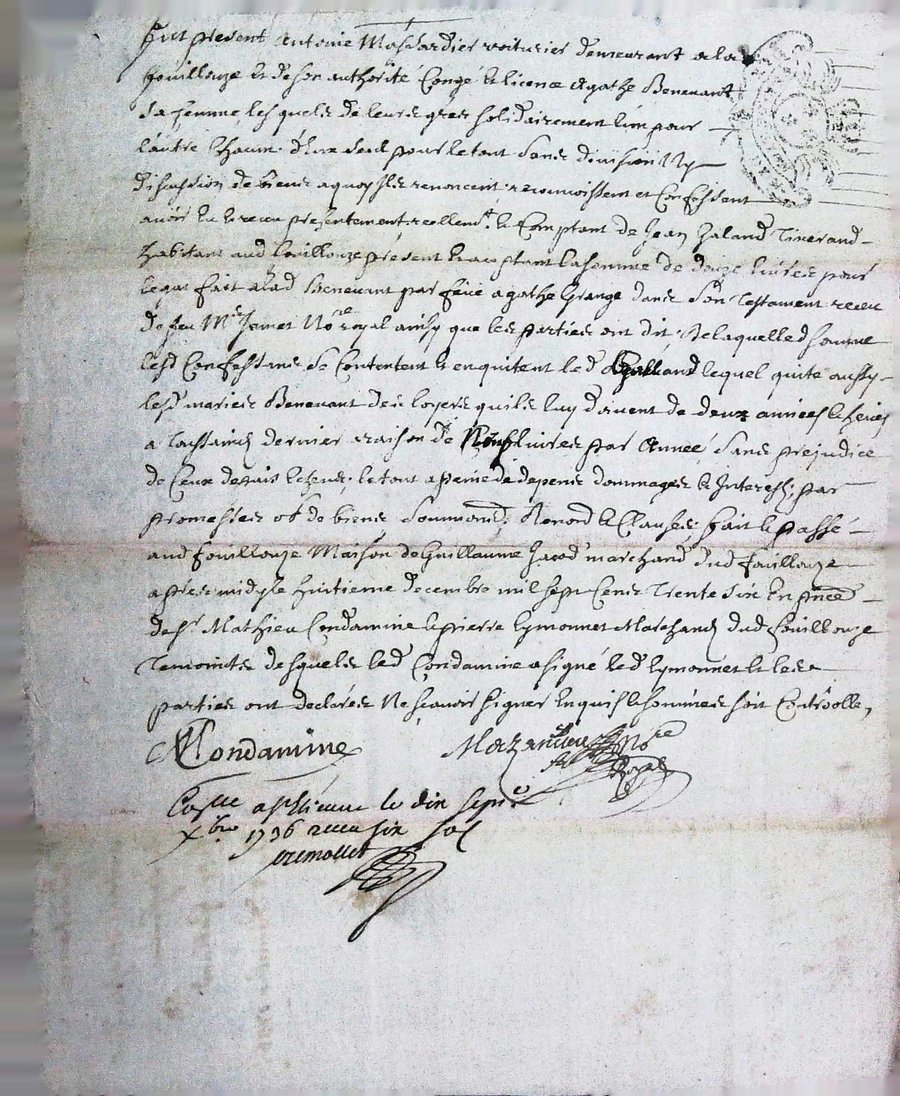 Fut present Antoine Masdardier voiturier demeurant a la
fouillouze & de son authorité Congé & licence Agathe Benevant
Sa femme lesquels de leurs grés solidairement l'un pour
l'autre & chacun d'eux seul pour le tout sans division ny
discussion de biens a quoy ils renoncent reconnoissent et Confessent
avoir eu & receu presentement reellemt. & Comptant de Jean Galand Tixerand
habitant aud fouillouze present & acceptant la somme de douze livres pour
legat fait a lad Benevant par feüe agathe Grange dans son Testament receu
de feu Me Jamet Nore royal ainsy que les parties ont dit de laquelle d somme
lesd Confessans Se Contentent & en quitent led Galland lequel quite aussy
lesd mariés Benevant des loyers quils luy doivent de deux années echeues
a Toussaincts dernier a raison de Neuf livres par Année Sans prejudice
de Ceux depuis echeus, le tout a peine de depens dommages & Interests, par
promesses ob de biens Soumond. Renond & Clauses. fait & passé
aud fouillouze Maison de Guillaume Jacod marchand dud fouillouze
apres midy le huitieme decembre mil sept Cens Trente Six En pnce
de sr Mathieu Condamine & pierre Eymonnet Marchands dud fouillouze
Temoints desquels led Condamine a signé led Eymonnet & les
parties ont declarés Ne scavoir signer Enquis & sommés soit Contrôollé,
MCondamine Nore
Royal
a le dix sept
xbre 1736 receu six sols